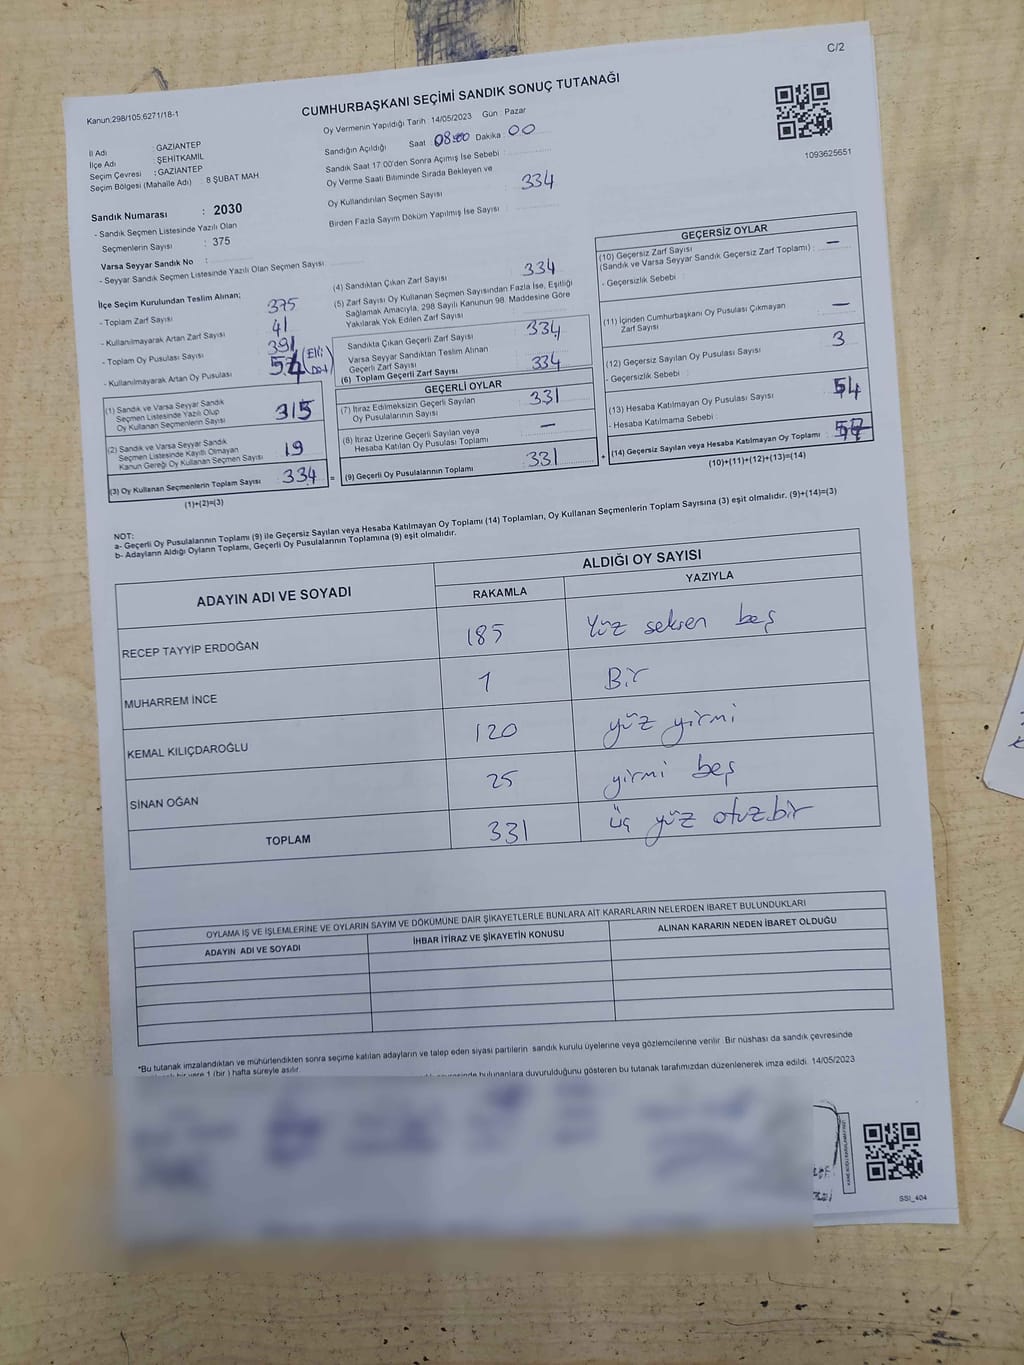 C/2
Kanun:298/105,6271/18-1
CUMHURBAŞKANI SEÇİMİ SANDIK SONUÇ TUTANAĞI
Oy Vermenin Yapıldığı Tarih : 14/05/2023 Gün : Pazar
İl Adı : GAZİANTEP
İlçe Adı : ŞEHİTKAMİL
Seçim Çevresi : GAZİANTEP
Seçim Bölgesi (Mahalle Adı) : 8 ŞUBAT MAH
Sandığın Açıldığı Saat : 08:00 Dakika : 00
Sandık Saat 17.00'den Sonra Açımış İse Sebebi :
Oy Verme Saati Bitiminde Sırada Bekleyen ve
Oy Kullandırılan Seçmen Sayısı : 334
Birden Fazla Sayım Döküm Yapılmış İse Sayısı :
1093625651
Sandık Numarası : 2030
- Sandık Seçmen Listesinde Yazılı Olan
Seçmenlerin Sayısı : 375
Varsa Seyyar Sandık No :
- Seyyar Sandık Seçmen Listesinde Yazılı Olan Seçmen Sayısı :
İlçe Seçim Kurulundan Teslim Alınan;
- Toplam Zarf Sayısı 375
- Kullanılmayarak Artan Zarf Sayısı 41
- Toplam Oy Pusulası Sayısı 391
- Kullanılmayarak Artan Oy Pusulası 54 (Elli
(1) Sandık ve Varsa Seyyar Sandık
Seçmen Listesinde Yazılı Olup
Oy Kullanan Seçmenlerin Sayısı 315
(2) Sandık ve Varsa Seyyar Sandık
Seçmen Listesinde Kayıtlı Olmayan
Kanun Gereği Oy Kullanan Seçmen Sayısı 19
(3) Oy Kullanan Seçmenlerin Toplam Sayısı 334 =
(1)+(2)=(3)
(4) Sandıktan Çıkan Zarf Sayısı : 334
(5) Zarf Sayısı Oy Kullanan Seçmen Sayısından Fazla İse, Eşitliği
Sağlamak Amacıyla, 298 Sayılı Kanunun 98. Maddesine Göre
Yakılarak Yok Edilen Zarf Sayısı :
Sandıkta Çıkan Geçerli Zarf Sayısı : 334
Varsa Seyyar Sandıktan Teslim Alınan
Geçerli Zarf Sayısı :
(6) Toplam Geçerli Zarf Sayısı : 334
GEÇERLİ OYLAR
(7) İtiraz Edilmeksizin Geçerli Sayılan
Oy Pusulalarının Sayısı : 331
(8) İtiraz Üzerine Geçerli Sayılan veya
Hesaba Katılan Oy Pusulası Toplamı : —
(9) Geçerli Oy Pusulalarının Toplamı : 331 +
GEÇERSİZ OYLAR
(10) Geçersiz Zarf Sayısı
(Sandık ve Varsa Seyyar Sandık Geçersiz Zarf Toplamı) : —
- Geçersizlik Sebebi :
(11) İçinden Cumhurbaşkanı Oy Pusulası Çıkmayan
Zarf Sayısı : —
(12) Geçersiz Sayılan Oy Pusulası Sayısı : 3
- Geçersizlik Sebebi :
(13) Hesaba Katılmayan Oy Pusulası Sayısı : 54
- Hesaba Katılmama Sebebi :
(14) Geçersiz Sayılan veya Hesaba Katılmayan Oy Toplamı : 57
(10)+(11)+(12)+(13)=(14)
NOT:
a- Geçerli Oy Pusulalarının Toplamı (9) ile Geçersiz Sayılan veya Hesaba Katılmayan Oy Toplamı (14) Toplamları, Oy Kullanan Seçmenlerin Toplam Sayısına (3) eşit olmalıdır. (9)+(14)=(3)
b- Adayların Aldığı Oyların Toplamı, Geçerli Oy Pusulalarının Toplamına (9) eşit olmalıdır.
ADAYIN ADI VE SOYADI
ALDIĞI OY SAYISI
RAKAMLA YAZIYLA
RECEP TAYYİP ERDOĞAN 185 Yüz seksen beş
MUHARREM İNCE 1 Bir
KEMAL KILIÇDAROĞLU 120 yüz yirmi
SİNAN OĞAN 25 yirmi beş
TOPLAM 331 üç yüz otuz bir
OYLAMA İŞ VE İŞLEMLERİNE VE OYLARIN SAYIM VE DÖKÜMÜNE DAİR ŞİKAYETLERLE BUNLARA AİT KARARLARIN NELERDEN İBARET BULUNDUKLARI
ADAYIN ADI VE SOYADI İHBAR İTİRAZ VE ŞİKAYETİN KONUSU ALINAN KARARIN NEDEN İBARET OLDUĞU
*Bu tutanak imzalandıktan ve mühürlendikten sonra seçime katılan adayların ve talep eden siyasi partilerin sandık kurulu üyelerine veya gözlemcilerine verilir. Bir nüshası da sandık çevresinde
bir yere 1 (bir ) hafta süreyle asılır.
bulunanlara duyurulduğunu gösteren bu tutanak tarafımızdan düzenlenerek imza edildi. 14/05/2023
SSI_404